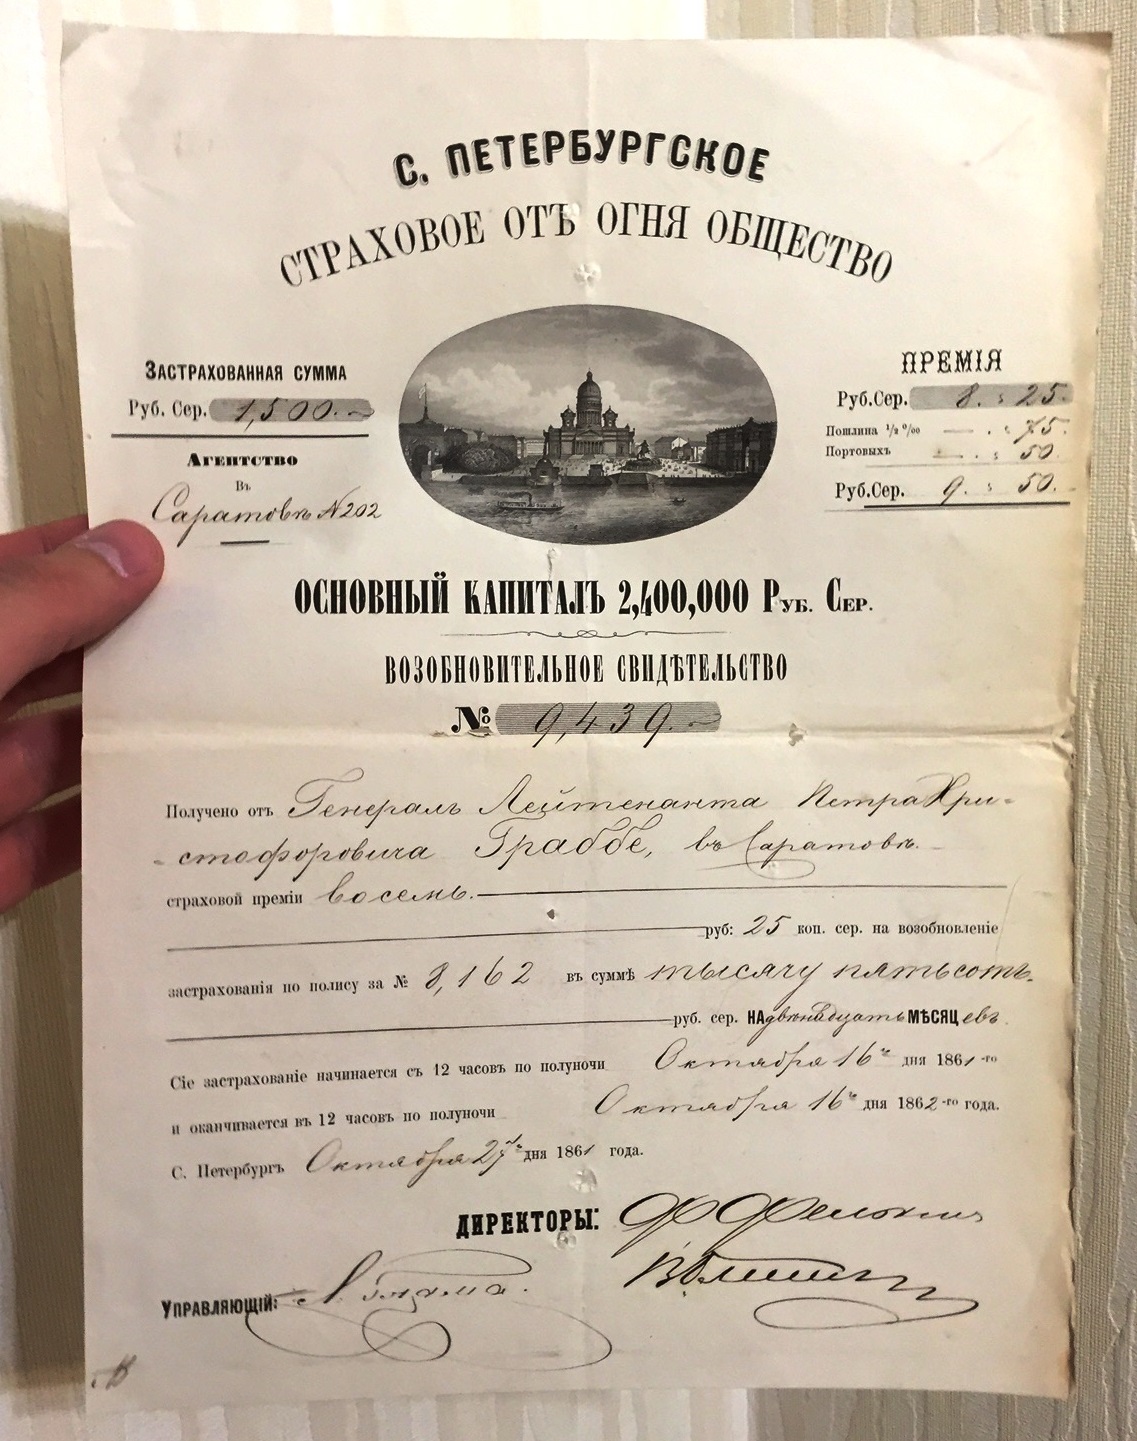 С. ПЕТЕРБУРГСКОЕ
СТРАХОВОЕ ОТЪ ОГНЯ ОБЩЕСТВО
ЗАСТРАХОВАННАЯ СУММА
Руб. Сер. 1,500.
АГЕНТСТВО
Въ
Саратовѣ №202
ПРЕМІЯ
Руб.Сер. 8. : 25.
Пошлина ½ %₀₀ — . : 75.
Портовыхъ — . : 50.
Руб.Сер. 9. : 50.
ОСНОВНЫЙ КАПИТАЛЪ 2,400,000 РУБ. СЕР.
ВОЗОБНОВИТЕЛЬНОЕ СВИДѢТЕЛЬСТВО
№ 9,439.
Получено отъ Генералъ Лейтенанта Петра Хри-
-стофоровича Граббе, въ Саратовѣ.
страховой преміи восемь.
руб: 25 коп. сер. на возобновленіе
застрахованія по полису за № 8,162 въ суммѣ тысячу пятьсотъ.
руб. сер. НА двѣнадцать МѢСЯЦевъ.
Сіе застрахованіе начинается съ 12 часовъ по полуночи Октября 16го дня 1861-го
и оканчивается въ 12 часовъ по полуночи Октября 16го дня 1862-го года.
С. Петербургъ Октября 27го дня 1861 года.
ДИРЕКТОРЫ:
УПРАВЛЯЮЩІЙ: